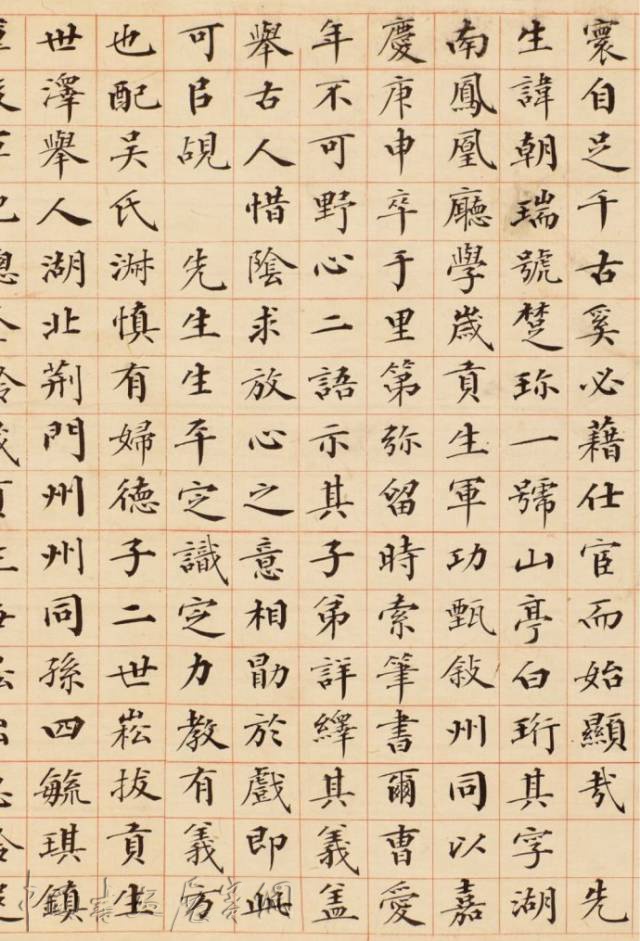 寰自足千古奚必藉仕宦而始顯哉 先
生諱朝瑞號楚珎一號山亭白珩其字湖
南鳳凰廳學歲貢生軍功甄敍州同以嘉
慶庚申卒于里第弥留時索筆書爾曹愛
年不可野心二語示其子弟詳繹其義盖
舉古人惜陰求放心之意相勖於戲即此
可㠯觇 先生生平定識定力教有義方
也配吴氏淋慎有婦德子二世崧拔貢生
世澤舉人湖北荆門州州同孫四毓琪鎮